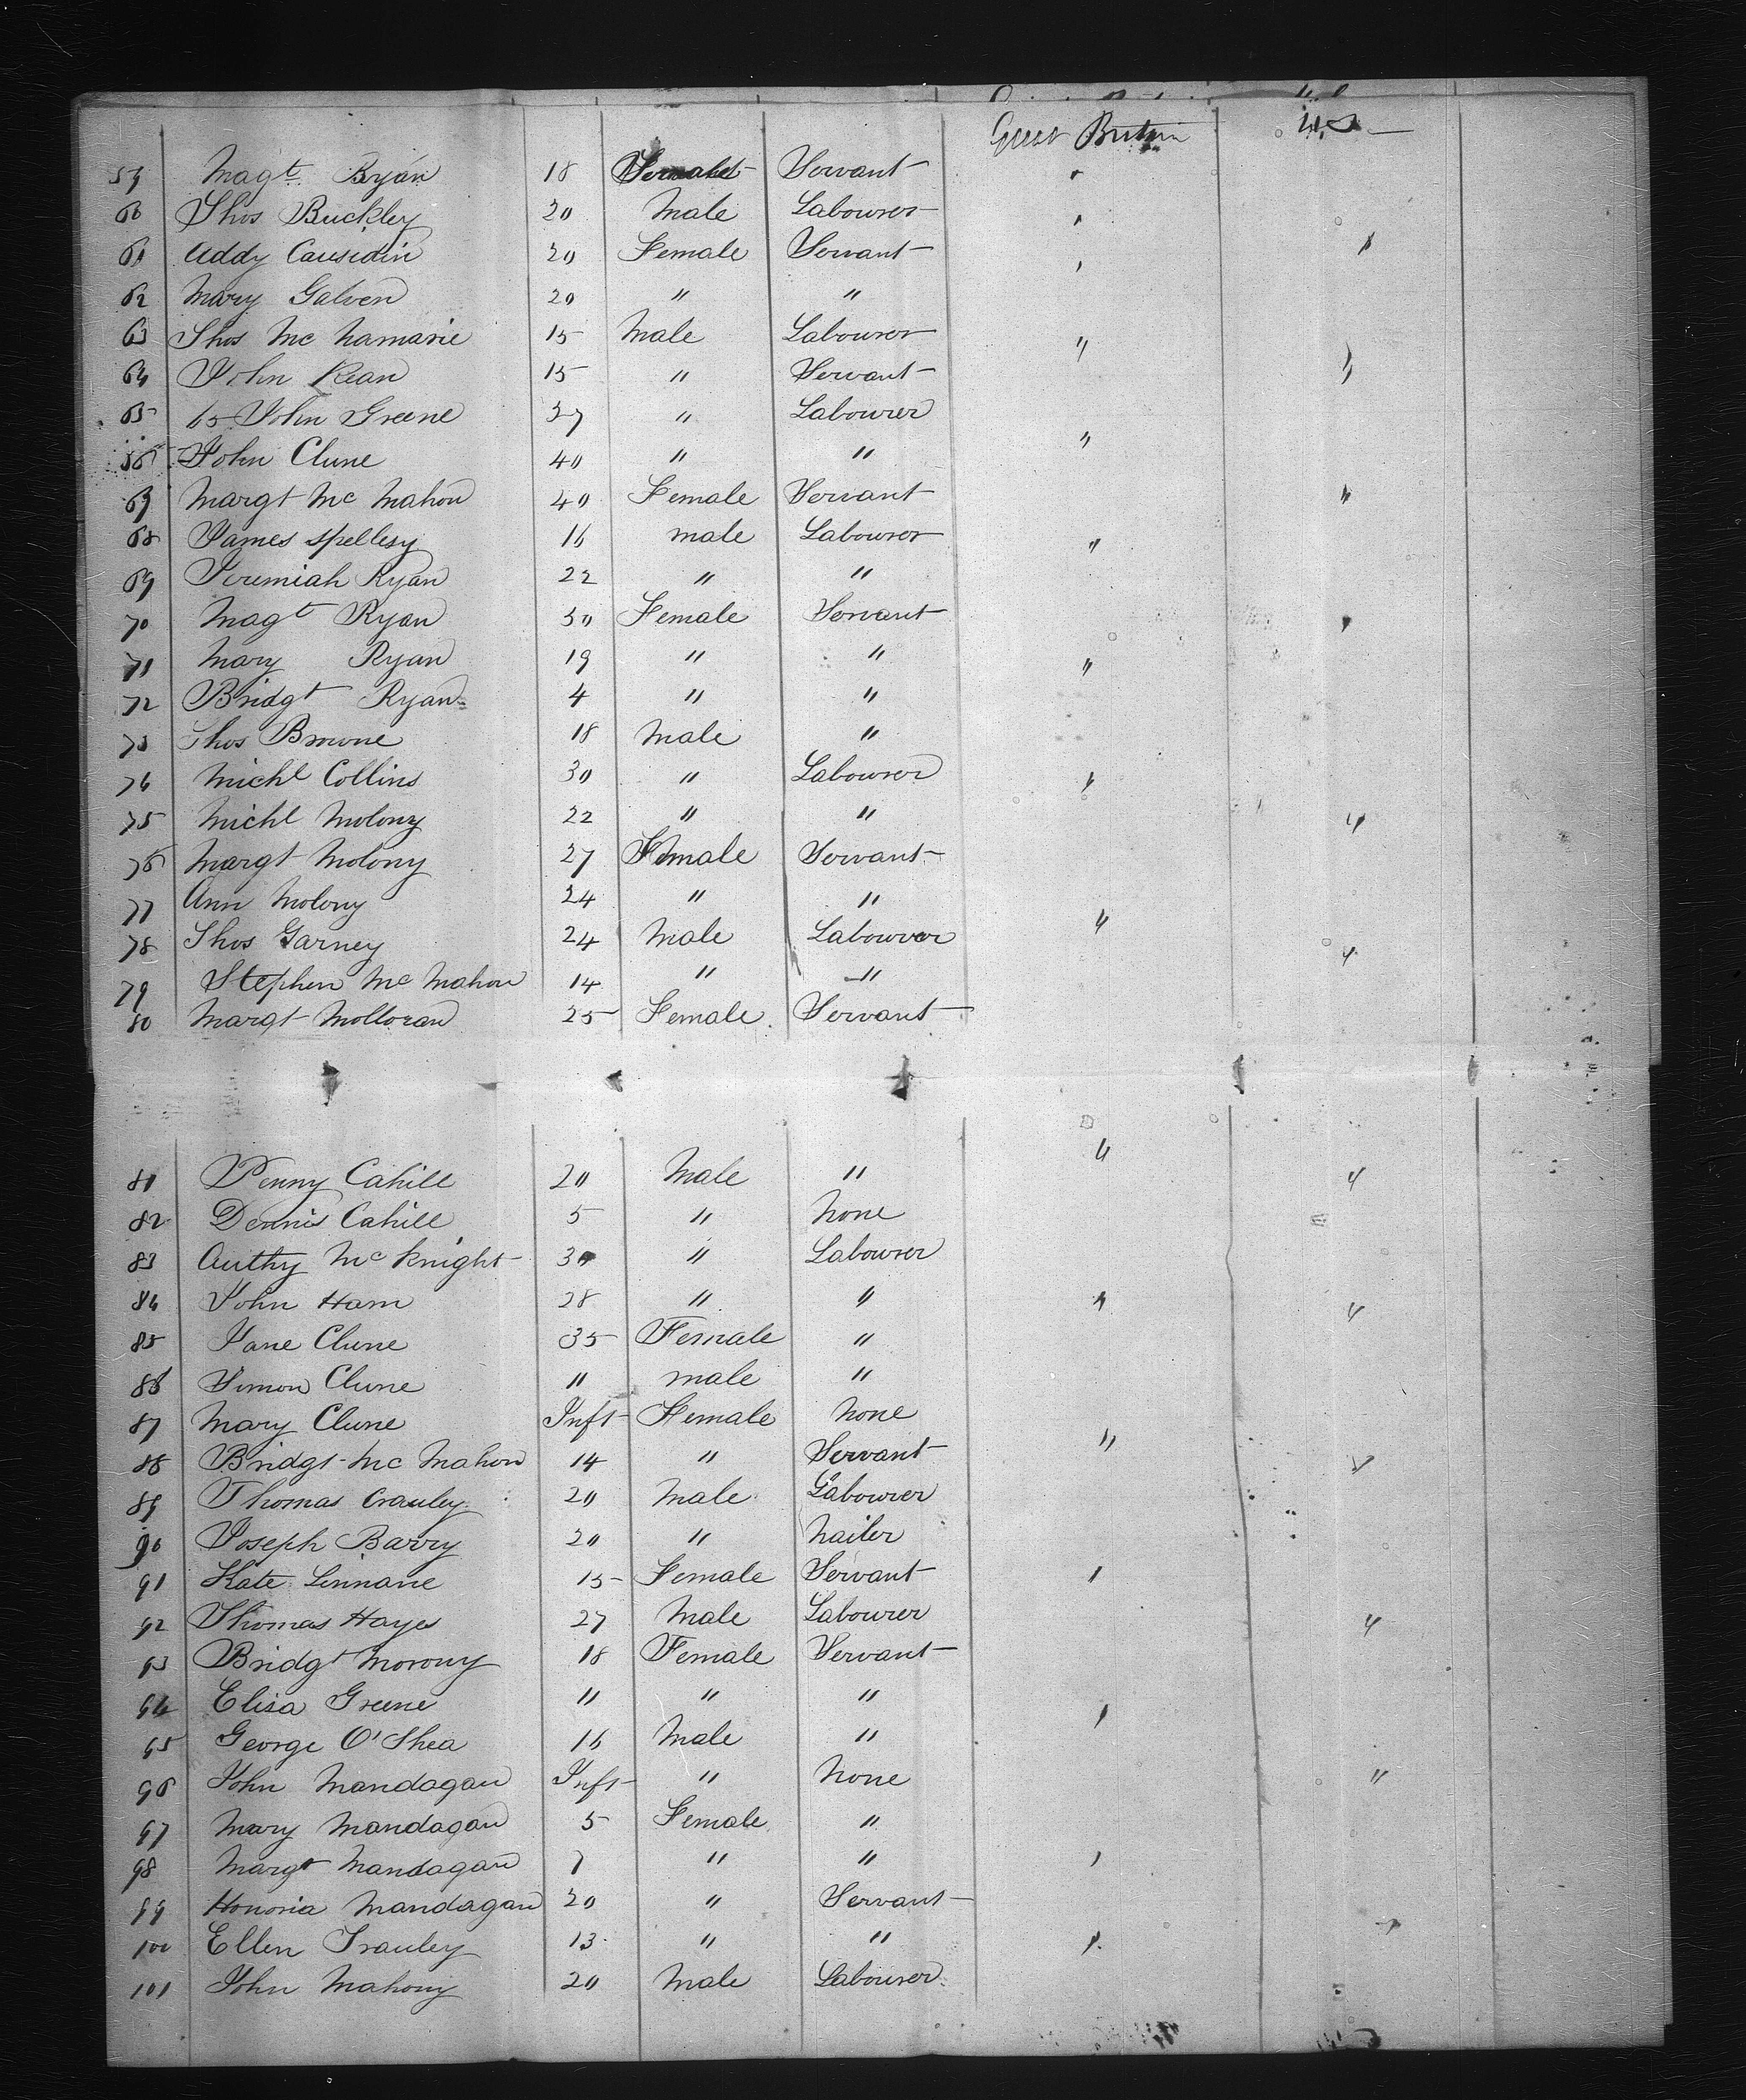 Great Britain U.S.
59 Magt. Ryan 18 Female Servant "
60 Thos Buckley 20 Male Labourer "
61 Addy 20 Female Servant " "
62 Mary Galven 20 " "
63 Thos Mc Namarie 15 Male Labourer "
64 John Kean 15 " Servant "
65 65 John Greene 37 " Labourer
66 John Clune 40 " " "
67 Margt Mc Mahon 40 Female Servant "
68 James Spellesy 16 male Labourer "
69 Jeremiah Ryan 22 " "
70 Magt Ryan 30 Female Servant "
71 Mary Ryan 19 " " "
72 Bridgt Ryan 4 " "
73 Thos Browne 18 Male "
74 Michl Collins 30 " Labourer "
75 Michl Molony 22 " " "
76 Margt Molony 27 Female Servant
77 Ann Molony 24 " "
78 Thos Garney 24 Male Labourer " "
79 Stephen Mc Mahon 14 " "
80 Margt Molloran 25 Female Servant
" "
81 Penny Cahill 20 Male "
82 Dennis Cahill 5 " None
83 Authy Mc Knight 30 " Labourer
84 John Ham 28 " " " "
85 Jane Clune 35 Female "
86 Simon Clune " male "
87 Mary Clune Inft Female None
88 Bridgt Mc Mahon 14 " Servant " "
89 Thomas Crauley 20 Male Labourer
90 Joseph Barry 20 " Nailer
91 Kate Linnane 15 Female Servant "
92 Thomas Hayes 27 Male Labourer "
93 Bridgt Morony 18 Female Servant
94 Elisa Greene " " " "
95 George O'Shea 16 Male "
96 John Mandagan Inft " None "
97 Mary Mandagan 5 Female "
98 Margt Mandagan 7 " " "
99 Honoria Mandagan 20 " Servant
100 Ellen Frauley 13 " " " "
101 John Mahony 20 Male Labourer